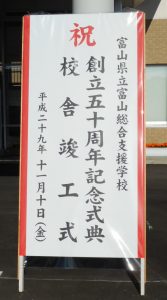 祝
富山県立富山総合支援学校
創立五十周年記念式典
校舎竣工式
平成二十九年十一月十日(金)